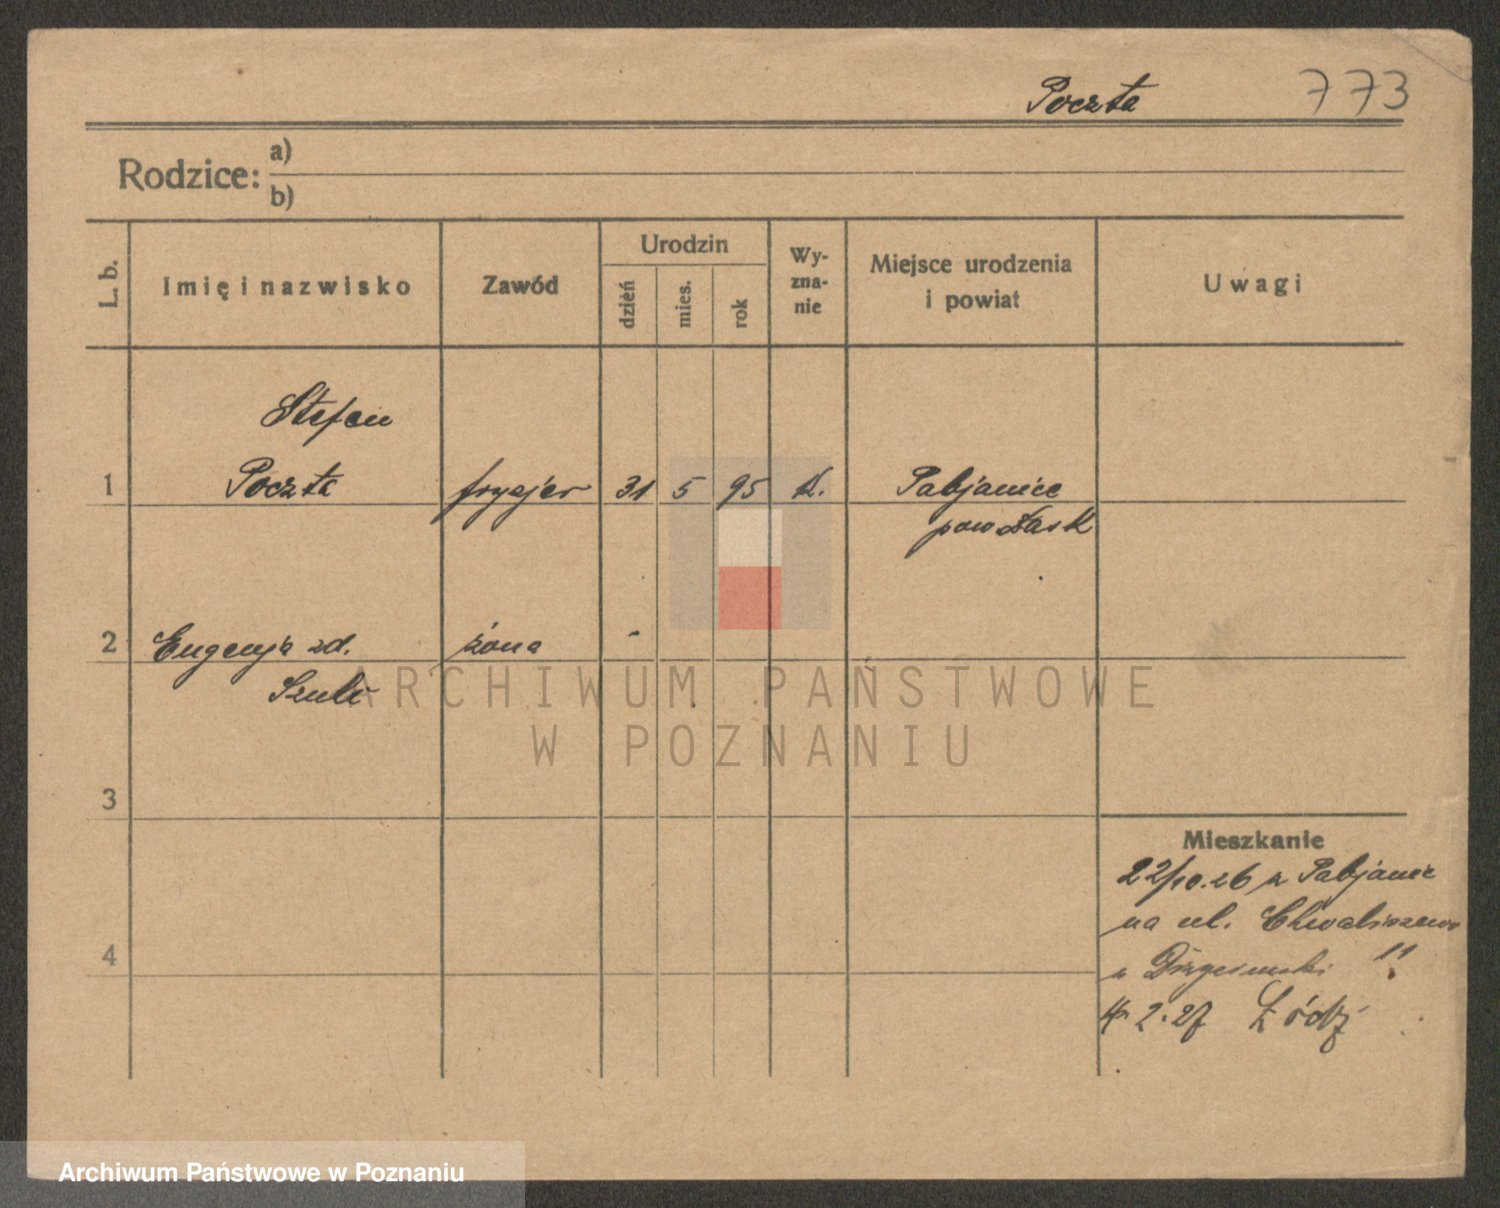 Poczta 773
Rodzice: a)
b)
L. b.
Imię i nazwisko
Zawód
Urodzin
dzień
mies.
rok
Wy-
zna-
nie
Miejsce urodzenia
i powiat
Uwagi
Stefan
1 Poczta fryzjer 31 5 95 k. Pabjanice
pow Łask
2 Eugenja zd. żona -
Szulc
ARCHIWUM PAŃSTWOWE
W POZNANIU
3
Mieszkanie
22/10.26 z Pabjanic
na ul. Chwaliszewo
4 11
2.27 Łódź
Archiwum Państwowe w Poznaniu